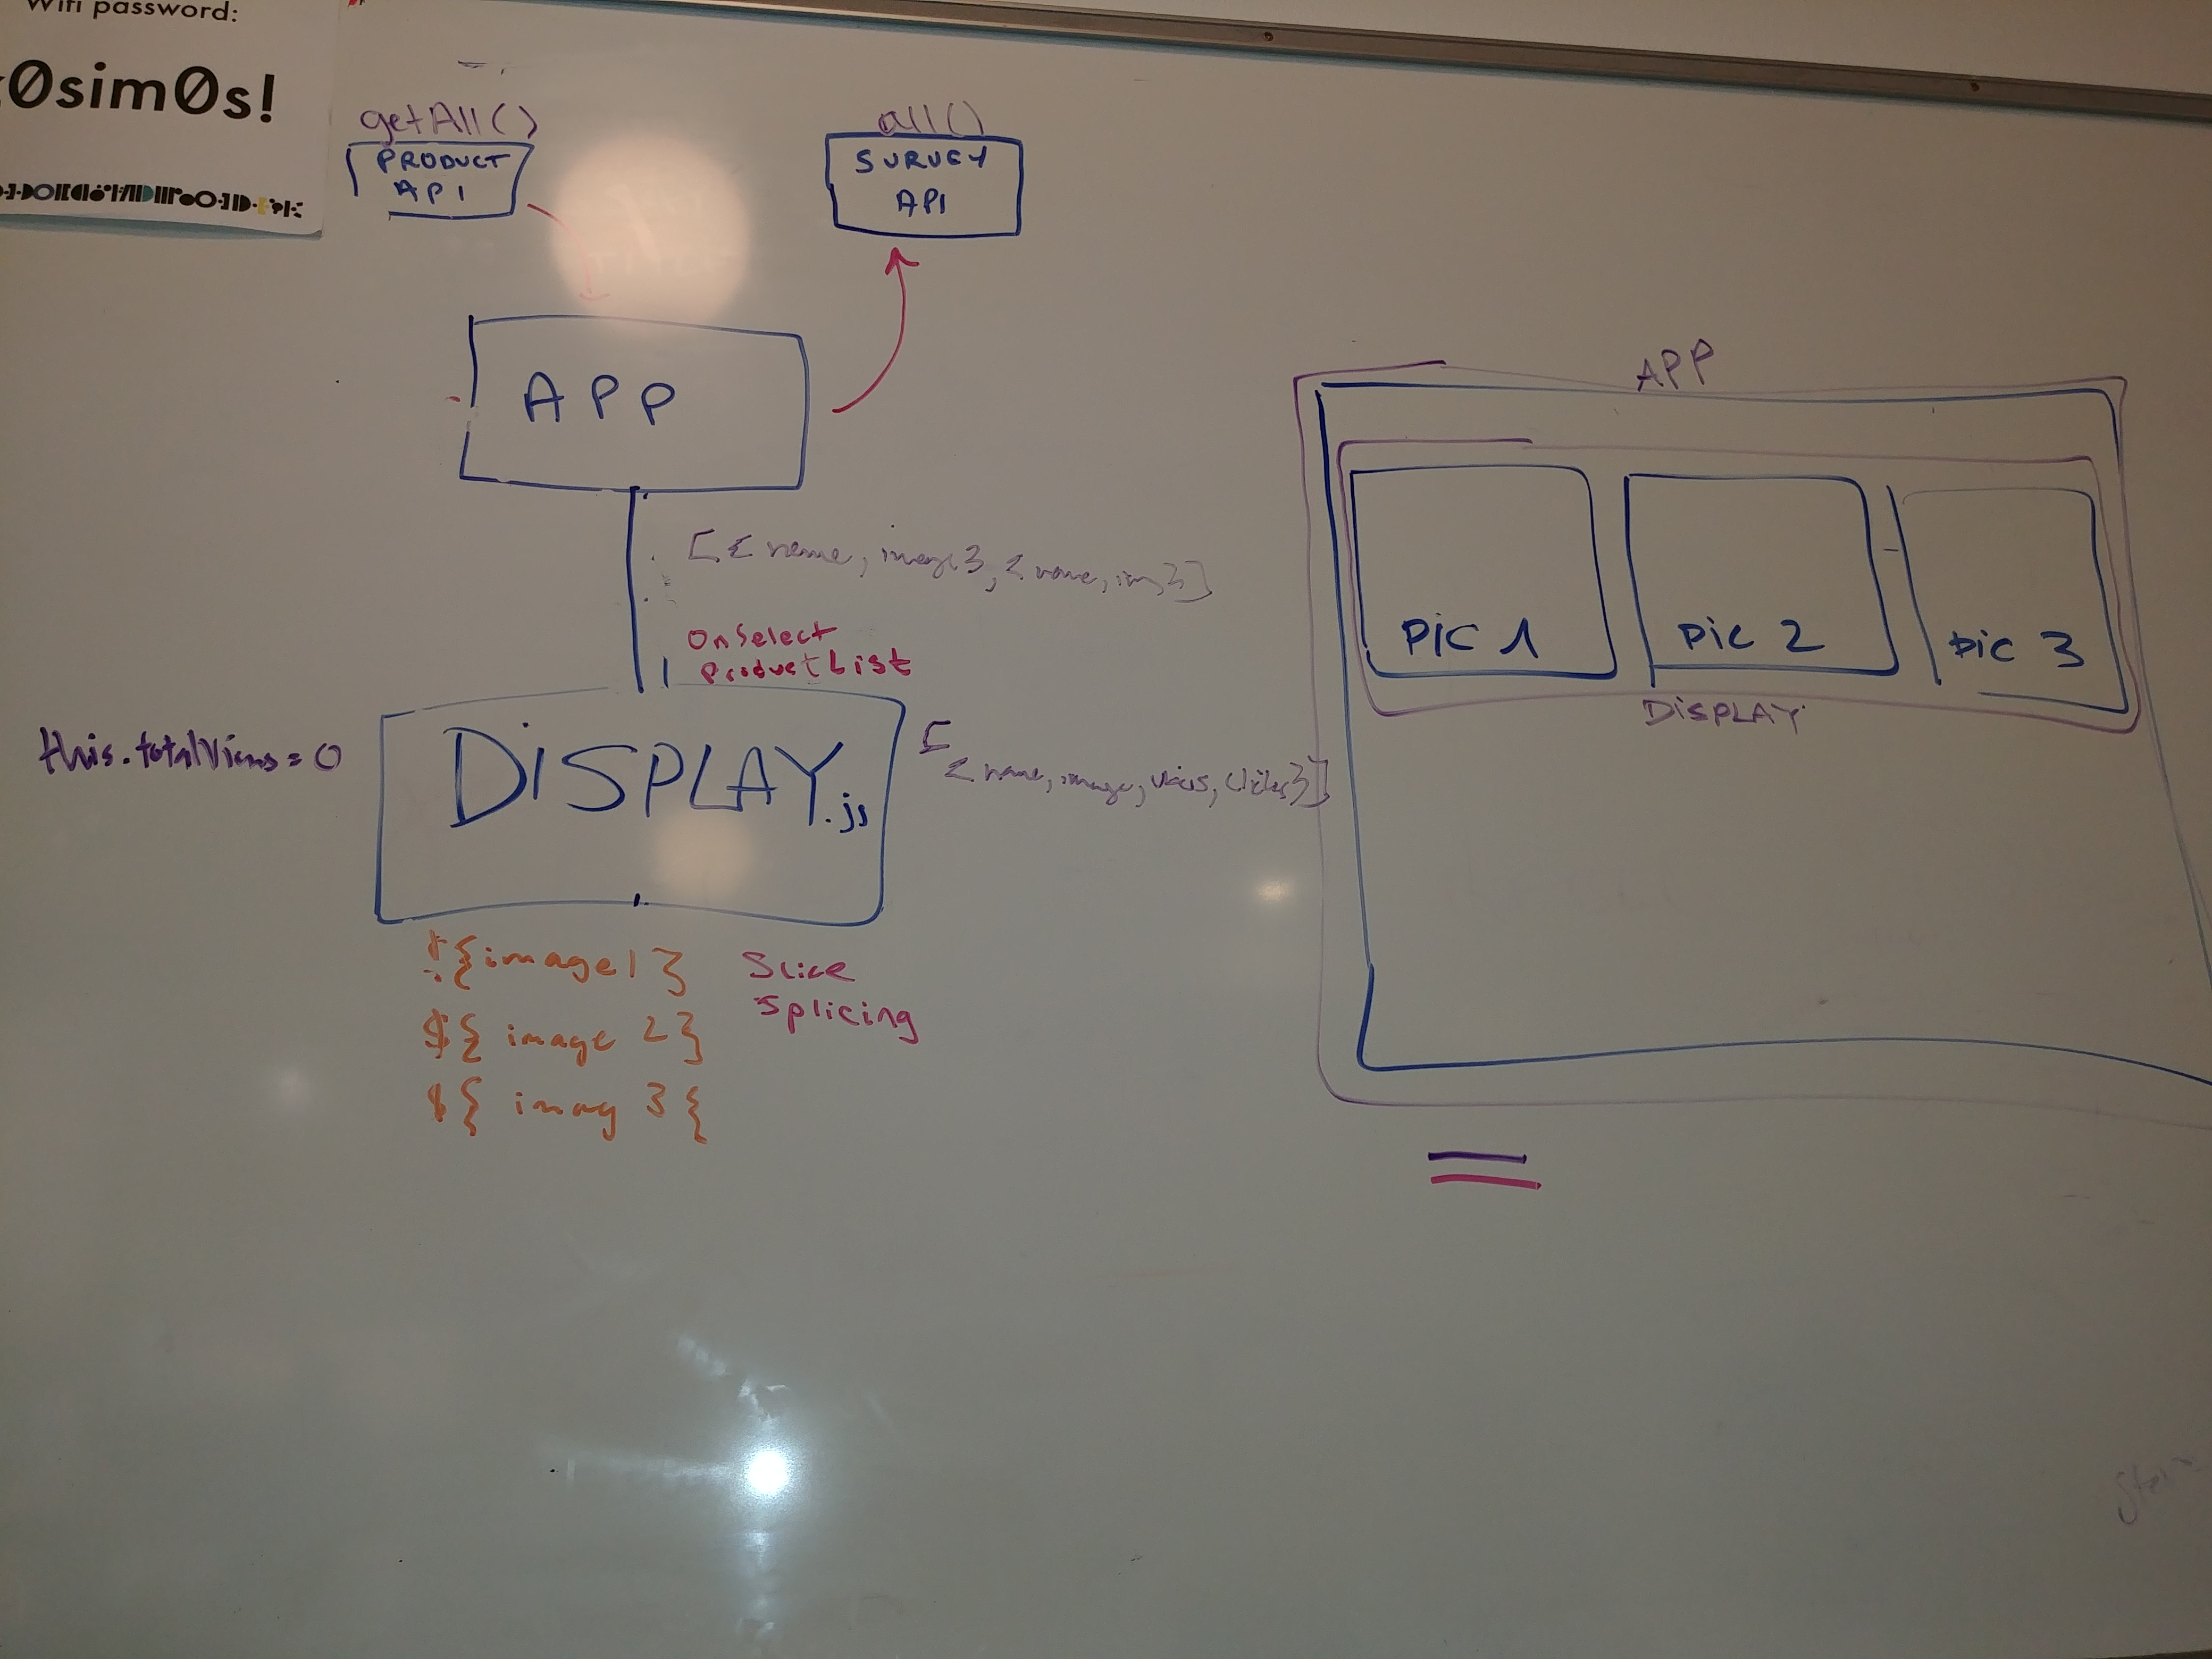 Wifi password:
0sim0s!
getAll()
PRODUCT
API
all()
SURVEY
API
APP
[{ name, image}, { name, im }]
OnSelect
ProductList
this.totalViews = 0
DISPLAY.js
[
{ name, image, views, clicks}]
{image1}
${ image 2}
${ imag 3 {
Slice
Splicing
APP
PIC 1
PIC 2
PIC 3
DISPLAY